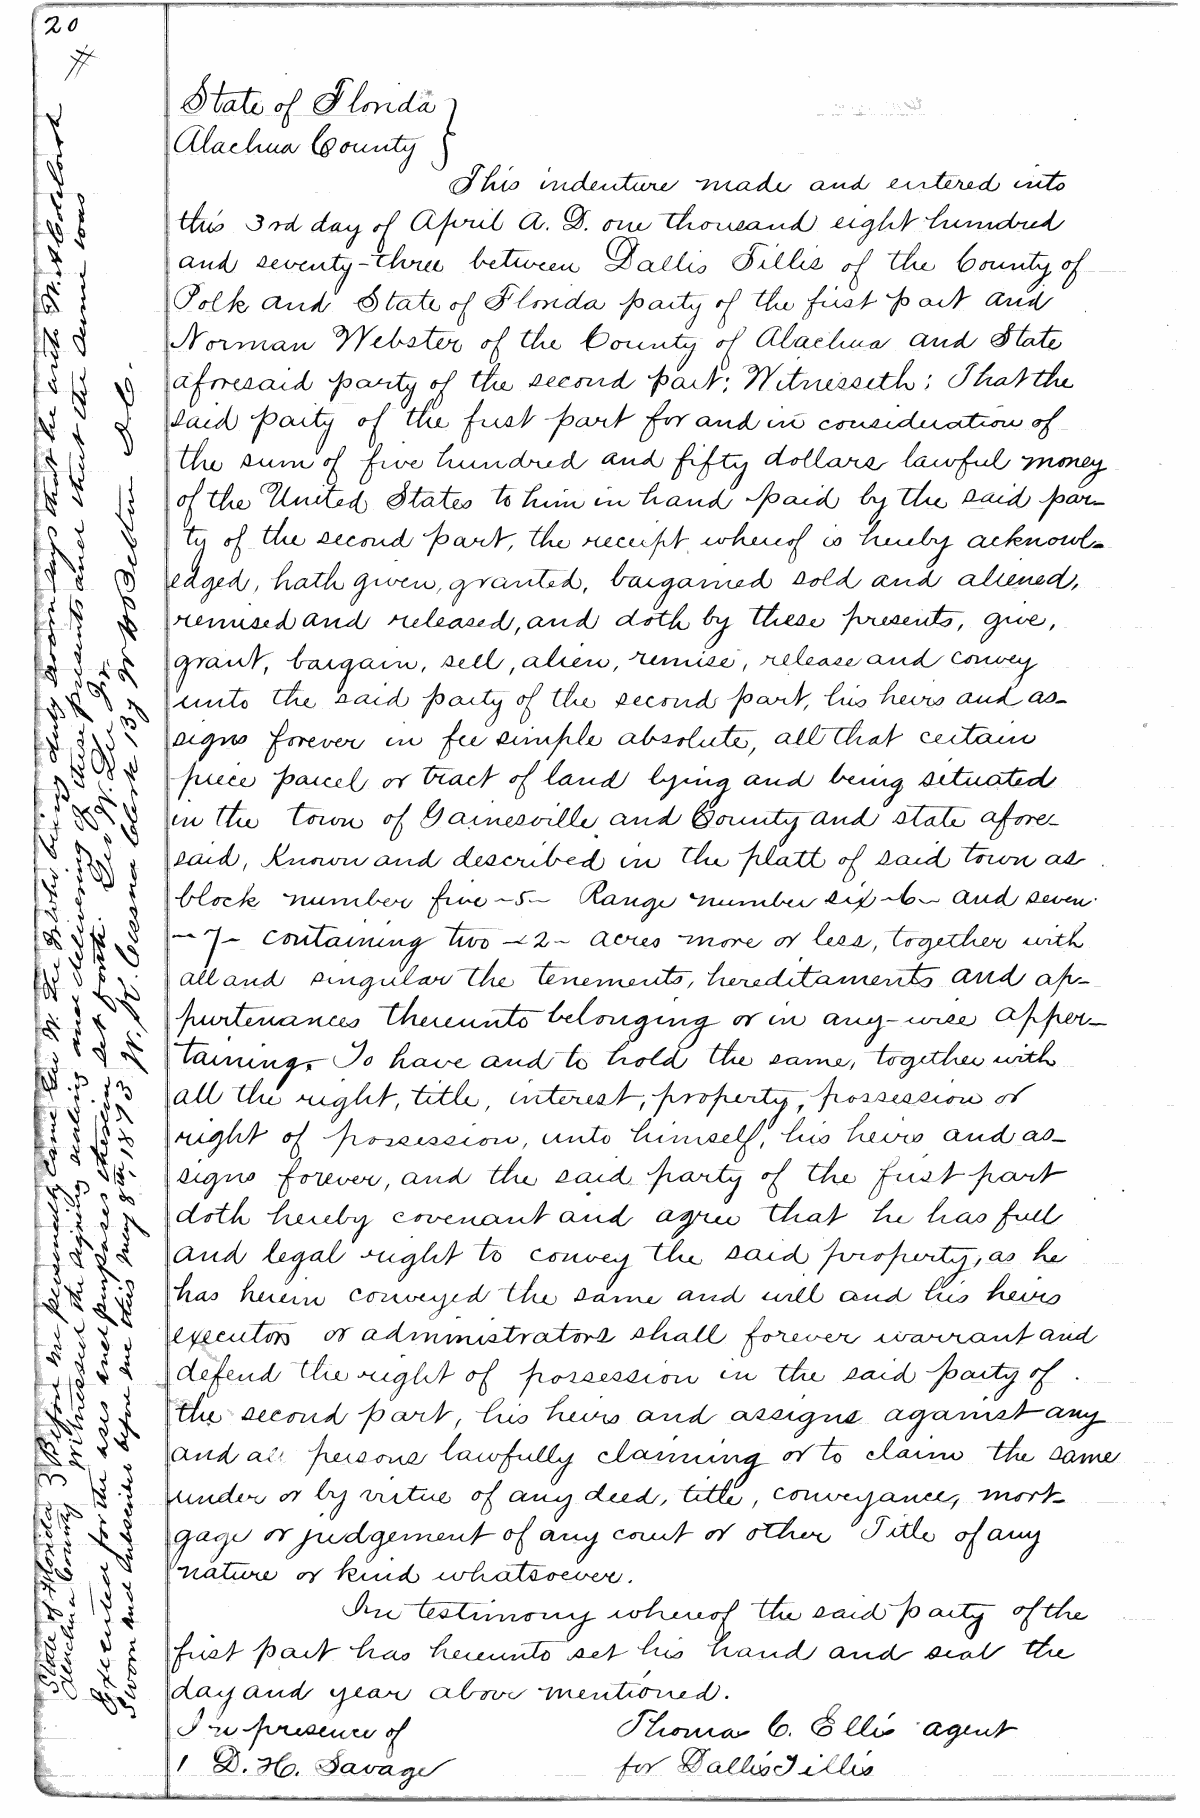 20
State of Florida
Alachua County
This indenture made and entered into
this 3rd day of April A. D. one thousand eight hundred
and seventy-three between Dallis Tillis of the County of
Polk and State of Florida party of the first part and
Norman Webster of the County of Alachua and State
aforesaid party of the second part; Witnesseth: That the
said party of the first part for and in consideration of
the sum of five hundred and fifty dollars lawful money
of the United States to him in hand paid by the said par-
ty of the second part, the receipt whereof is hereby acknowl-
edged, hath given, granted, bargained sold and aliened,
remised and released, and doth by these presents, give,
grant, bargain, sell, alien, remise, release and convey
unto the said party of the second part, his heirs and as-
signs forever in fee simple absolute, all that certain
piece parcel or tract of land lying and being situated
in the town of Gainesville and County and state afore-
said, Known and described in the platt of said town as
block number five -5- Range number six -6- and seven
-7- containing two -2- acres more or less, together with
all and singular the tenements, hereditaments and ap-
purtenances thereunto belonging or in any-wise apper-
taining. To have and to hold the same, together with
all the right, title, interest, property, possession or
right of possession, unto himself, his heirs and as-
signs forever, and the said party of the first part
doth hereby covenant and agree that he has full
and legal right to convey the said property, as he
has herein conveyed the same and will and his heirs
executors or administrators shall forever warrant and
defend the right of possession in the said party of
the second part, his heirs and assigns against any
and all persons lawfully claiming or to claim the same
under or by virtue of any deed, title, conveyance, mort-
gage or judgement of any court or other Title of any
nature or kind whatsoever.
In testimony whereof the said party of the
first part has hereunto set his hand and seal the
day and year above mentioned.
In presence of Thomas C. Ellis agent
1 D. H. Savage for Dallis Tillis
State of Florida
Alachua County
Before me personally came who being duly sworn says that he with
witnessed the signing sealing and delivering of these presents and that the same was
Executed for the uses and purposes therein set forth.
Sworn and Subscribed before me this May 8th, 1873 W. K. Cessna Clerk By D.C.